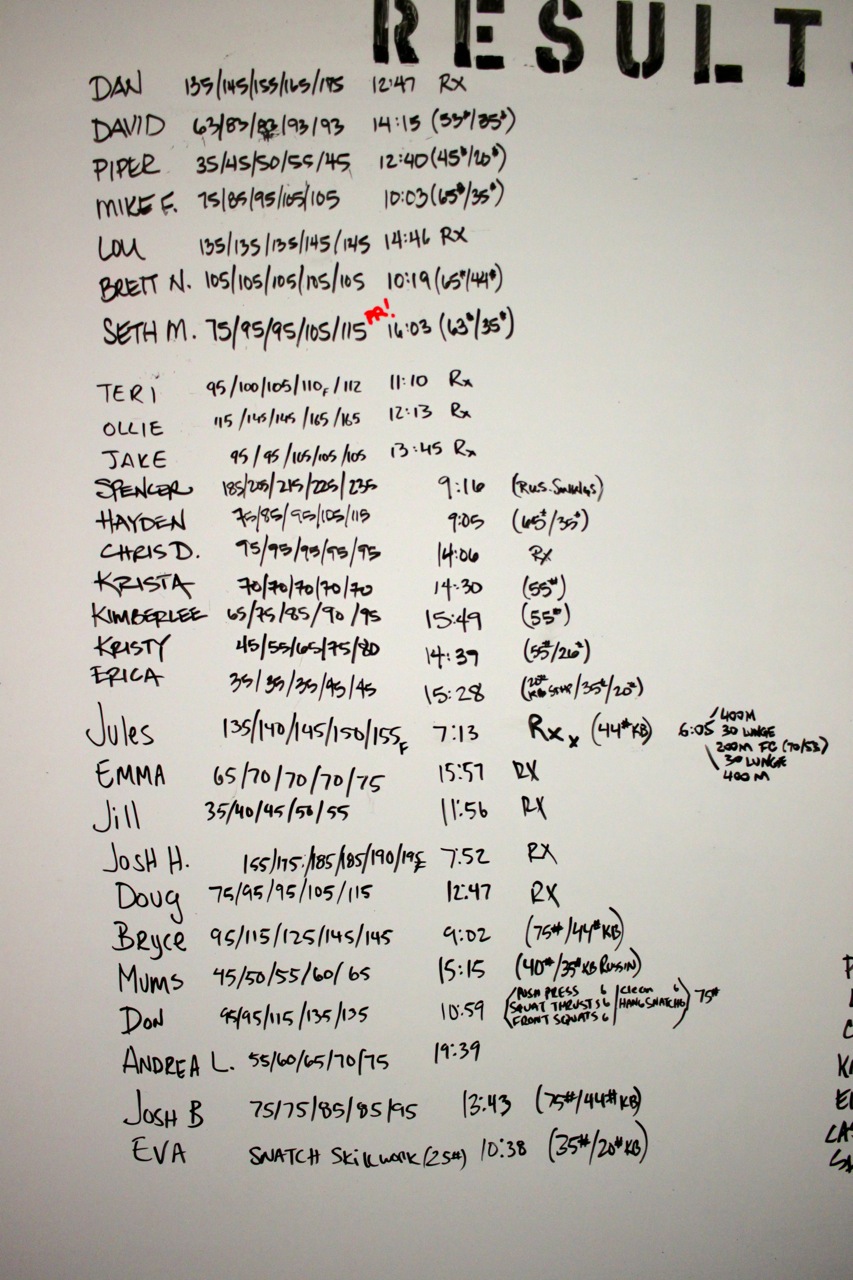 RESULT
DAN 135/145/155/165/175 12:47 RX
DAVID 63/83/83/93/93 14:15 (53#/35#)
PIPER 35/45/50/55/45 12:40 (45#/20#)
MIKE F. 75/85/95/105/105 10:03 (65#/35#)
LOU 135/135/135/145/145 14:46 RX
BRETT N. 105/105/105/105/105 10:19 (65#/44#)
SETH M. 75/95/95/105/115 PR! 16:03 (63#/35#)
TERI 95/100/105/110F/112 11:10 Rx
OLLIE 115/145/145/165/165 12:13 Rx
JAKE 95/95/105/105/105 13:45 Rx
SPENCER 185/205/215/225/235 9:16 (RUS. SWINGS)
HAYDEN 75/85/95/105/115 9:05 (65#/35#)
CHRIS D. 95/95/95/95/95 14:06 RX
KRISTA 70/70/70/70/70 14:30 (55#)
KIMBERLEE 65/75/85/90/95 15:49 (55#)
KRISTY 45/55/65/75/80 14:39 (55#/26#)
ERICA 35/35/35/45/45 15:28 (20# /35#/20#)
Jules 135/140/145/150/155F 7:13 RXx (44#KB) 6:05 400M
30 LUNGE
200M FC (70/53)
30 LUNGE
400M
EMMA 65/70/70/70/75 15:57 RX
Jill 35/40/45/50/55 11:56 RX
JOSH H. 155/175/185/185/190/195F 7:52 RX
Doug 75/95/95/105/115 12:47 RX
Bryce 95/115/125/145/145 9:02 (75#/44#KB)
Mums 45/50/55/60/65 15:15 (40#/35#KB RUSSIN)
Don 95/95/115/135/135 10:59 (PUSH PRESS 6 / Clean 6
SQUAT THRUSTS 6 HANG SNATCH 6) 75#
FRONT SQUATS 6
ANDREA L. 55/60/65/70/75 19:39
JOSH B 75/75/85/85/95 13:43 (75#/44#KB)
EVA SNATCH Skillwork (25#) 10:38 (35#/20#KB)